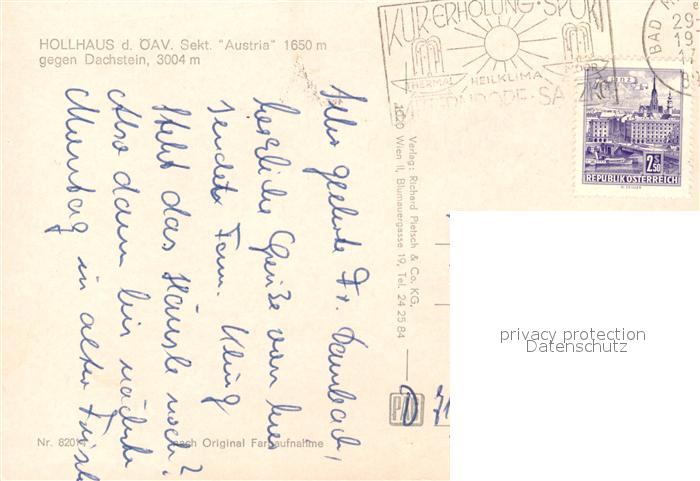 HOLLHAUS d. ÖAV. Sekt. "Austria" 1650 m
gegen Dachstein, 3004 m
KUR·ERHOLUNG·SPORT
THERMAL HEILKLIMA
BAD
29.
LINZ
2.50
REPUBLIK ÖSTERREICH
Verlag: Richard Pietsch & Co. KG.
1020 Wien II, Blumauergasse 19, Tel. 24 25 84
Sehr geehrte Fr. Dambach,
herzliche Grüße von hier
sendet Fam. Kling
Steht das Häusle noch?
Also dann bis nächste
Montag in alter Frisch
D 71
privacy protection
Datenschutz
Nr. 8201 nach Original Farbaufnahme